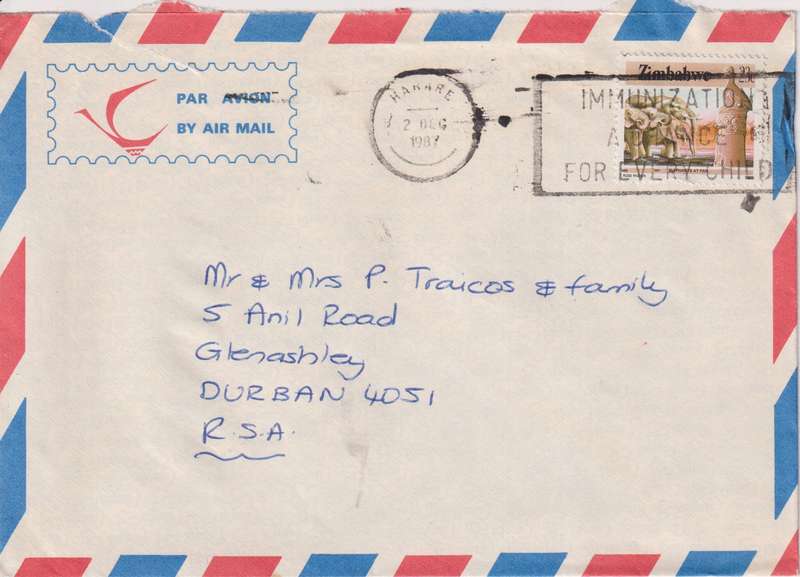 PAR AVION
BY AIR MAIL
HARARE
2 DEC
1987
Zimbabwe 23c
IMMUNIZATION
FOR EVERY CHILD
Mr & Mrs P. Traicos & family
5 Anil Road
Glenashley
DURBAN 4051
R.S.A.